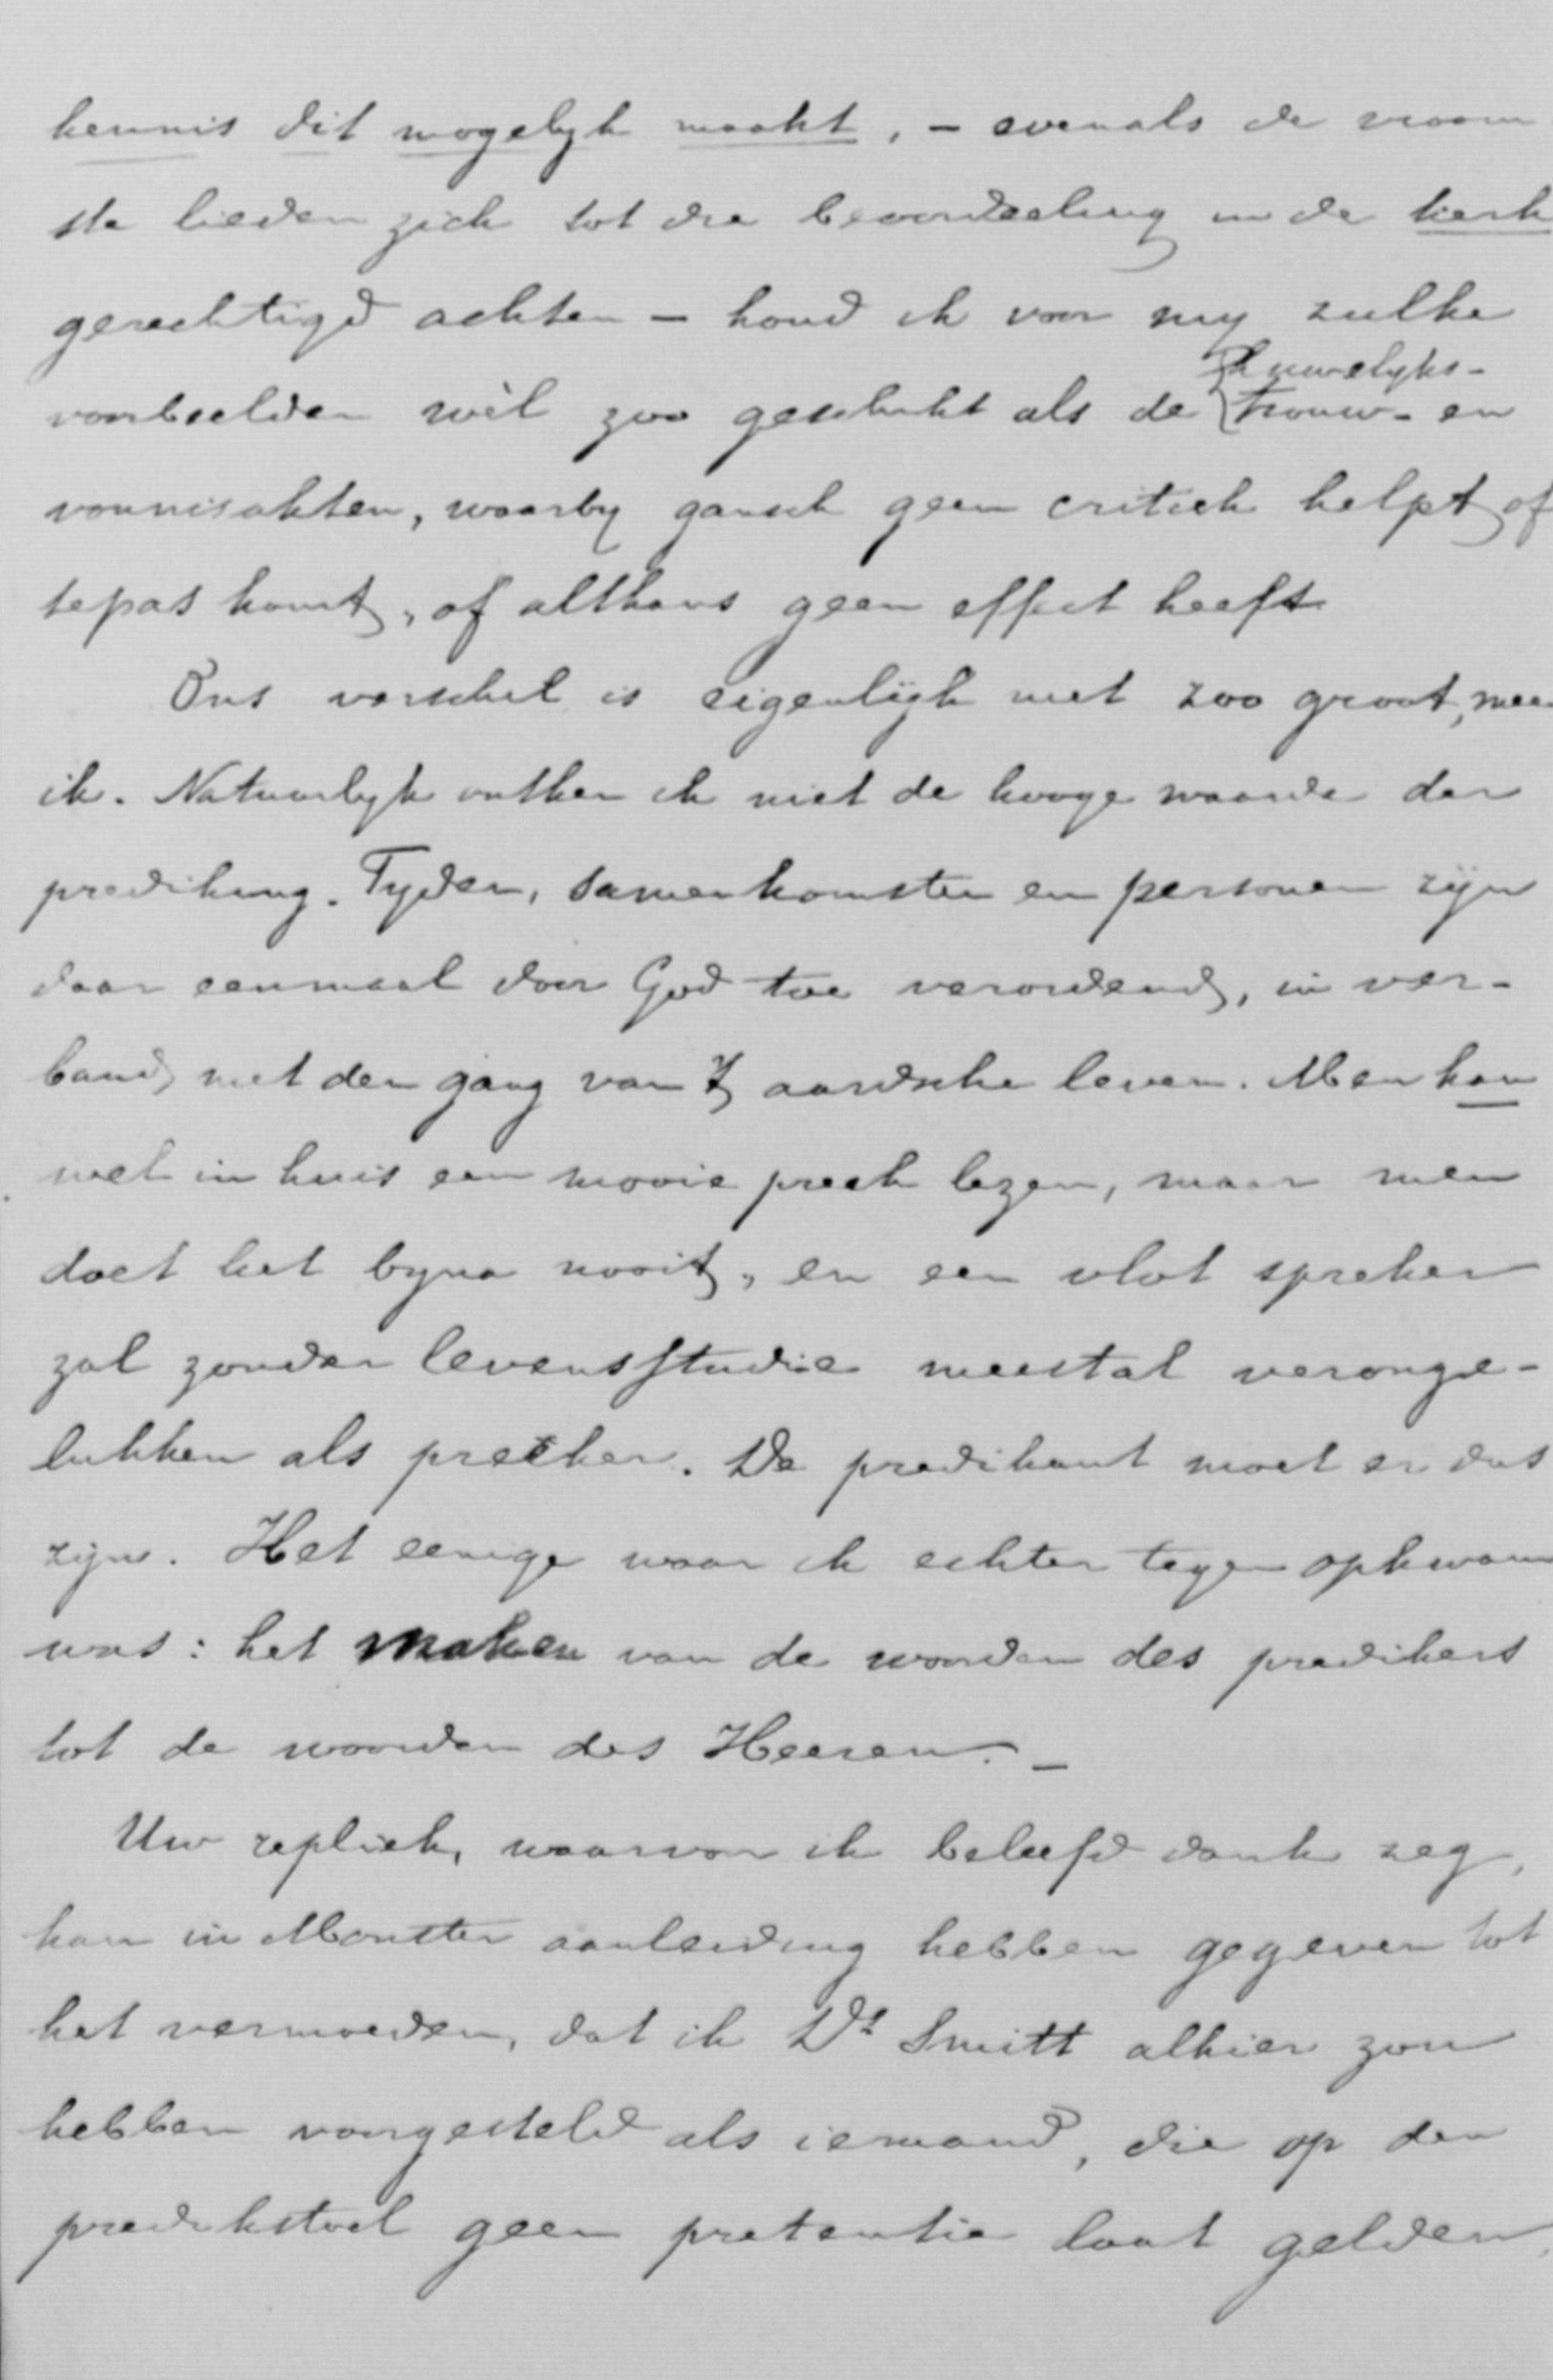 kennis dit mogelyk maakt, – evenals de vroom
ste lieden zich tot die beoordeeling in de kerk
gerechtigd achten – houd ik voor my zulke
huwelyks-
voorbeelden wèl zoo geschikt als de trouw- en
vonnisakten, waarby gansch geen critiek helpt of
tepas komt, of althans geen effect heeft
Ons verschil is eigenlijk niet zoo groot, mee
ik. Natuurlyk ontken ik niet de hooge waarde der
prediking. Tyden, samenkomsten en personen zijn
daar eenmaal door God toe verordend, in ver-
band met den gang van 't aardsche leven. Men kan
wel in huis een mooie preek lezen, maar men
doet het byna nooit, en een vlot spreker
zal zonder levensstudie meestal veronge-
lukken als preeker. De predikant moet er dus
zijn. Het eenige waar ik echter tegen opkwam
was: het maken van de woorden des predikers
tot de woorden des Heeren. –
Uw repliek, waarvoor ik beleefd dank zeg,
kan in Monster aanleiding hebben gegeven tot
het vermoeden, dat ik Ds Smitt alhier zou
hebben voorgesteld als iemand, die op den
predikstoel geen pretentie laat gelden,